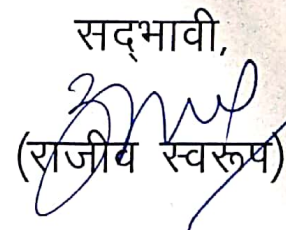 सद्भावी,
(राजीव स्वरूप)